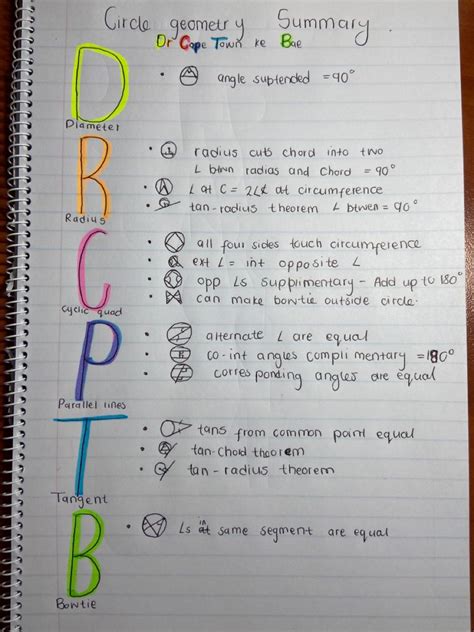 Circle geometry Summary.
Dr Cape Town ke Bae
D
• angle subtended = 90°
Diameter
R
• radius cuts chord into two
∠ btwn radias and chord = 90°
• ∠ at C = 2∠¢ at circumference
• tan-radius theorem ∠ btwen = 90°
Radius
C
• all four sides touch circumference
• ext ∠ = int opposite ∠
• opp ∠s supplimentary - Add up to 180°
• can make bowtie outside circle.
cyclic quad
P
• alternate ∠ are equal
• co-int angles complimentary = 180°
• corresponding angles are equal
Parallel lines
T
• tans from common point equal
• tan-chold theorem
• tan - radius theorem
Tangent
B
• ∠s in at same segment are equal
Bowtie